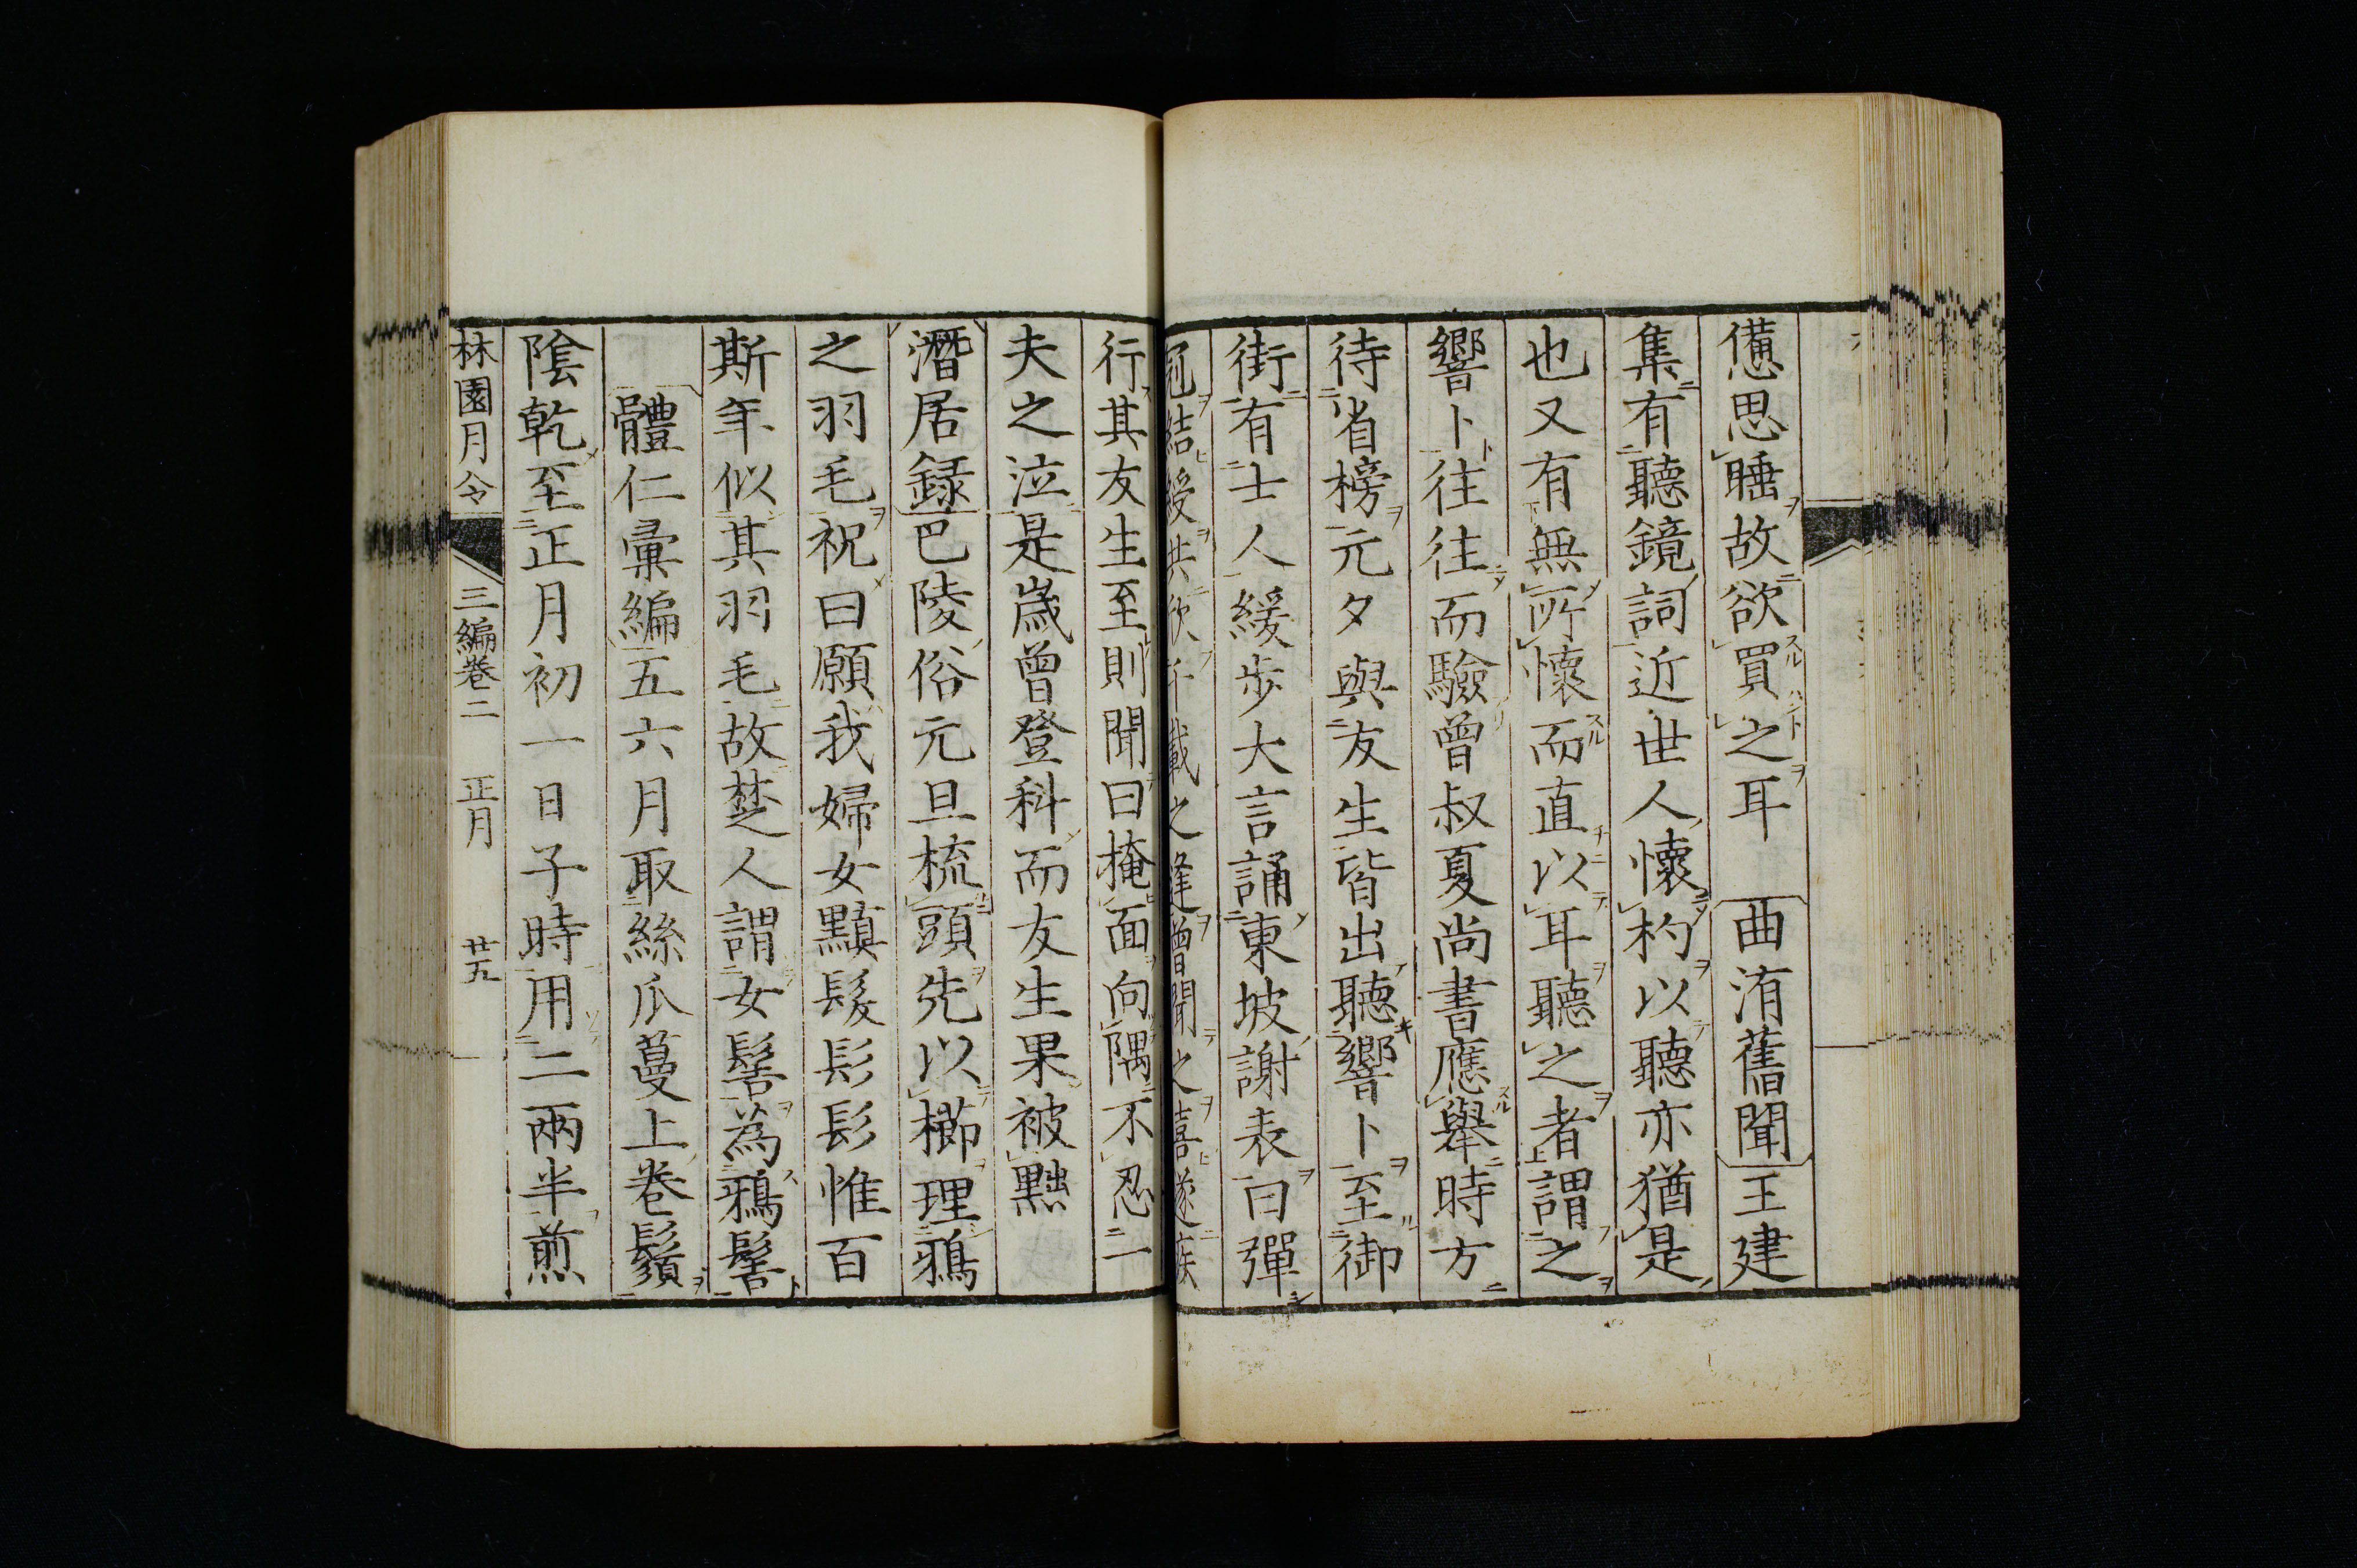 僃思睡故欲買之耳　曲洧舊聞王建
集有聽鏡詞近世人懷杓以聽亦猶是
也又有無所懷而直以耳聽之者謂之
響卜往往而驗曾叔夏尚書應舉時方
待省榜元夕與友生皆出聽響卜至御
街有士人緩步大言誦東坡謝表曰彈
冠結綬共欣千載之逢曾聞之喜遂疾
行其友生至則聞曰掩面向隅不忍一
夫之泣是歳曾登科而友生果被黜
潛居録巴陵俗元旦梳頭先以櫛理鴉
之羽毛祝曰願我婦女黰髮髟髟惟百
斯年似其羽毛故楚人謂女髻為鴉髻
體仁彙編五六月取絲瓜蔓上卷鬚
陰乾至正月初一日子時用二兩半煎
林園月令　三編卷二　正月　廿五